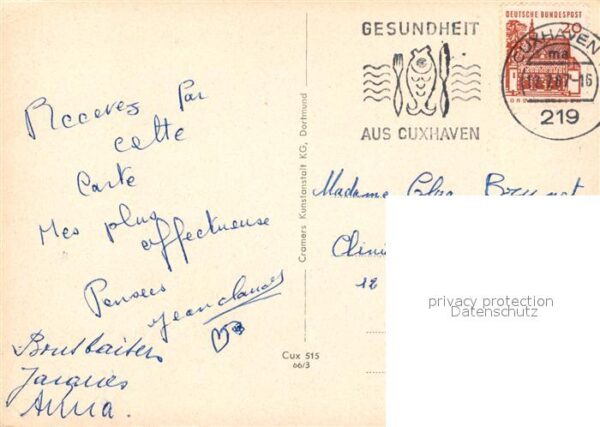 GESUNDHEIT
AUS CUXHAVEN
DEUTSCHE BUNDESPOST
20
CUXHAVEN
ma
-16
219
Recevez Par
cette
Carte
Mes plus
affectueuse
Pensees
Jean Claude
Jacques
Anna.
Cramers Kunstanstalt KG, Dortmund
Cux 515
66/3
Madame
12
privacy protection
Datenschutz